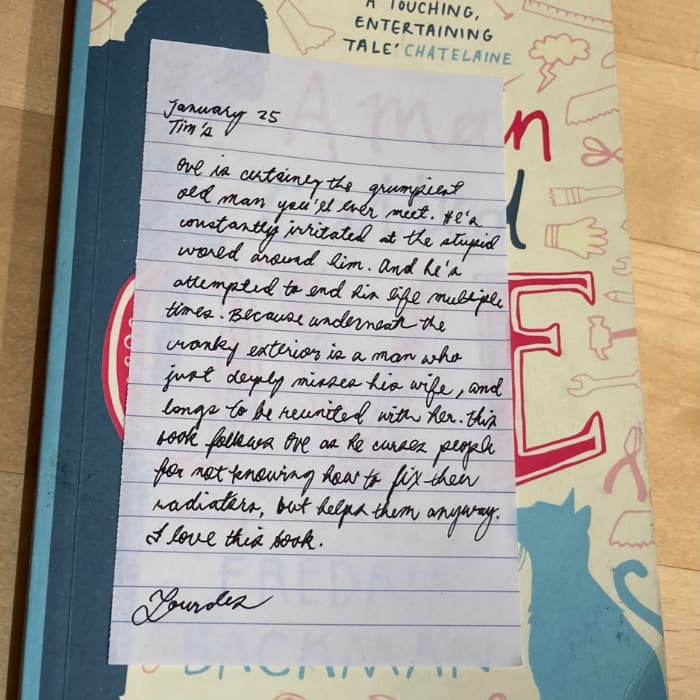 A TOUCHING,
ENTERTAINING
TALE' CHATELAINE
January 25
Tim's
Ove is certainly the grumpiest
old man you'll ever meet. He's
constantly irritated at the stupid
world around him. And he's
attempted to end his life multiple
times. Because underneath the
cranky exterior is a man who
just deeply misses his wife, and
longs to be reunited with her. This
book follows Ove as he curses people
for not knowing how to fix their
radiators, but helps them anyway.
I love this book.
Lourdes
A Man
E
FREDRIK
BACKMAN